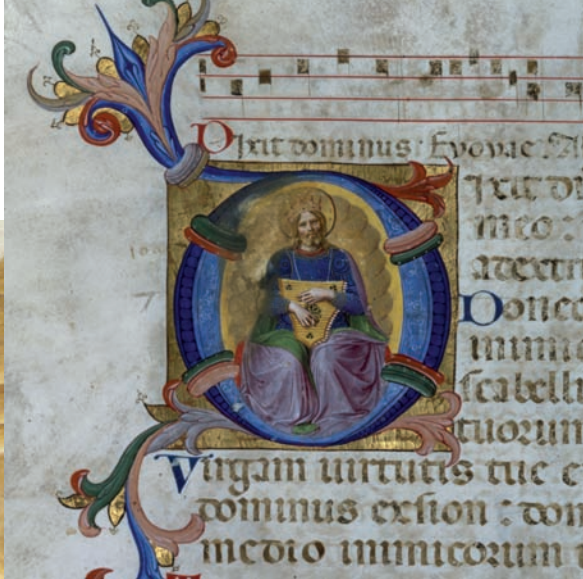 Dixit dominus: Evovae. A
ixit do
meo:
a dextri
Donec
inimic
scabell
tuorum
Virgam virtutis tue e
dominus ex sion: dom
medio inimicorum